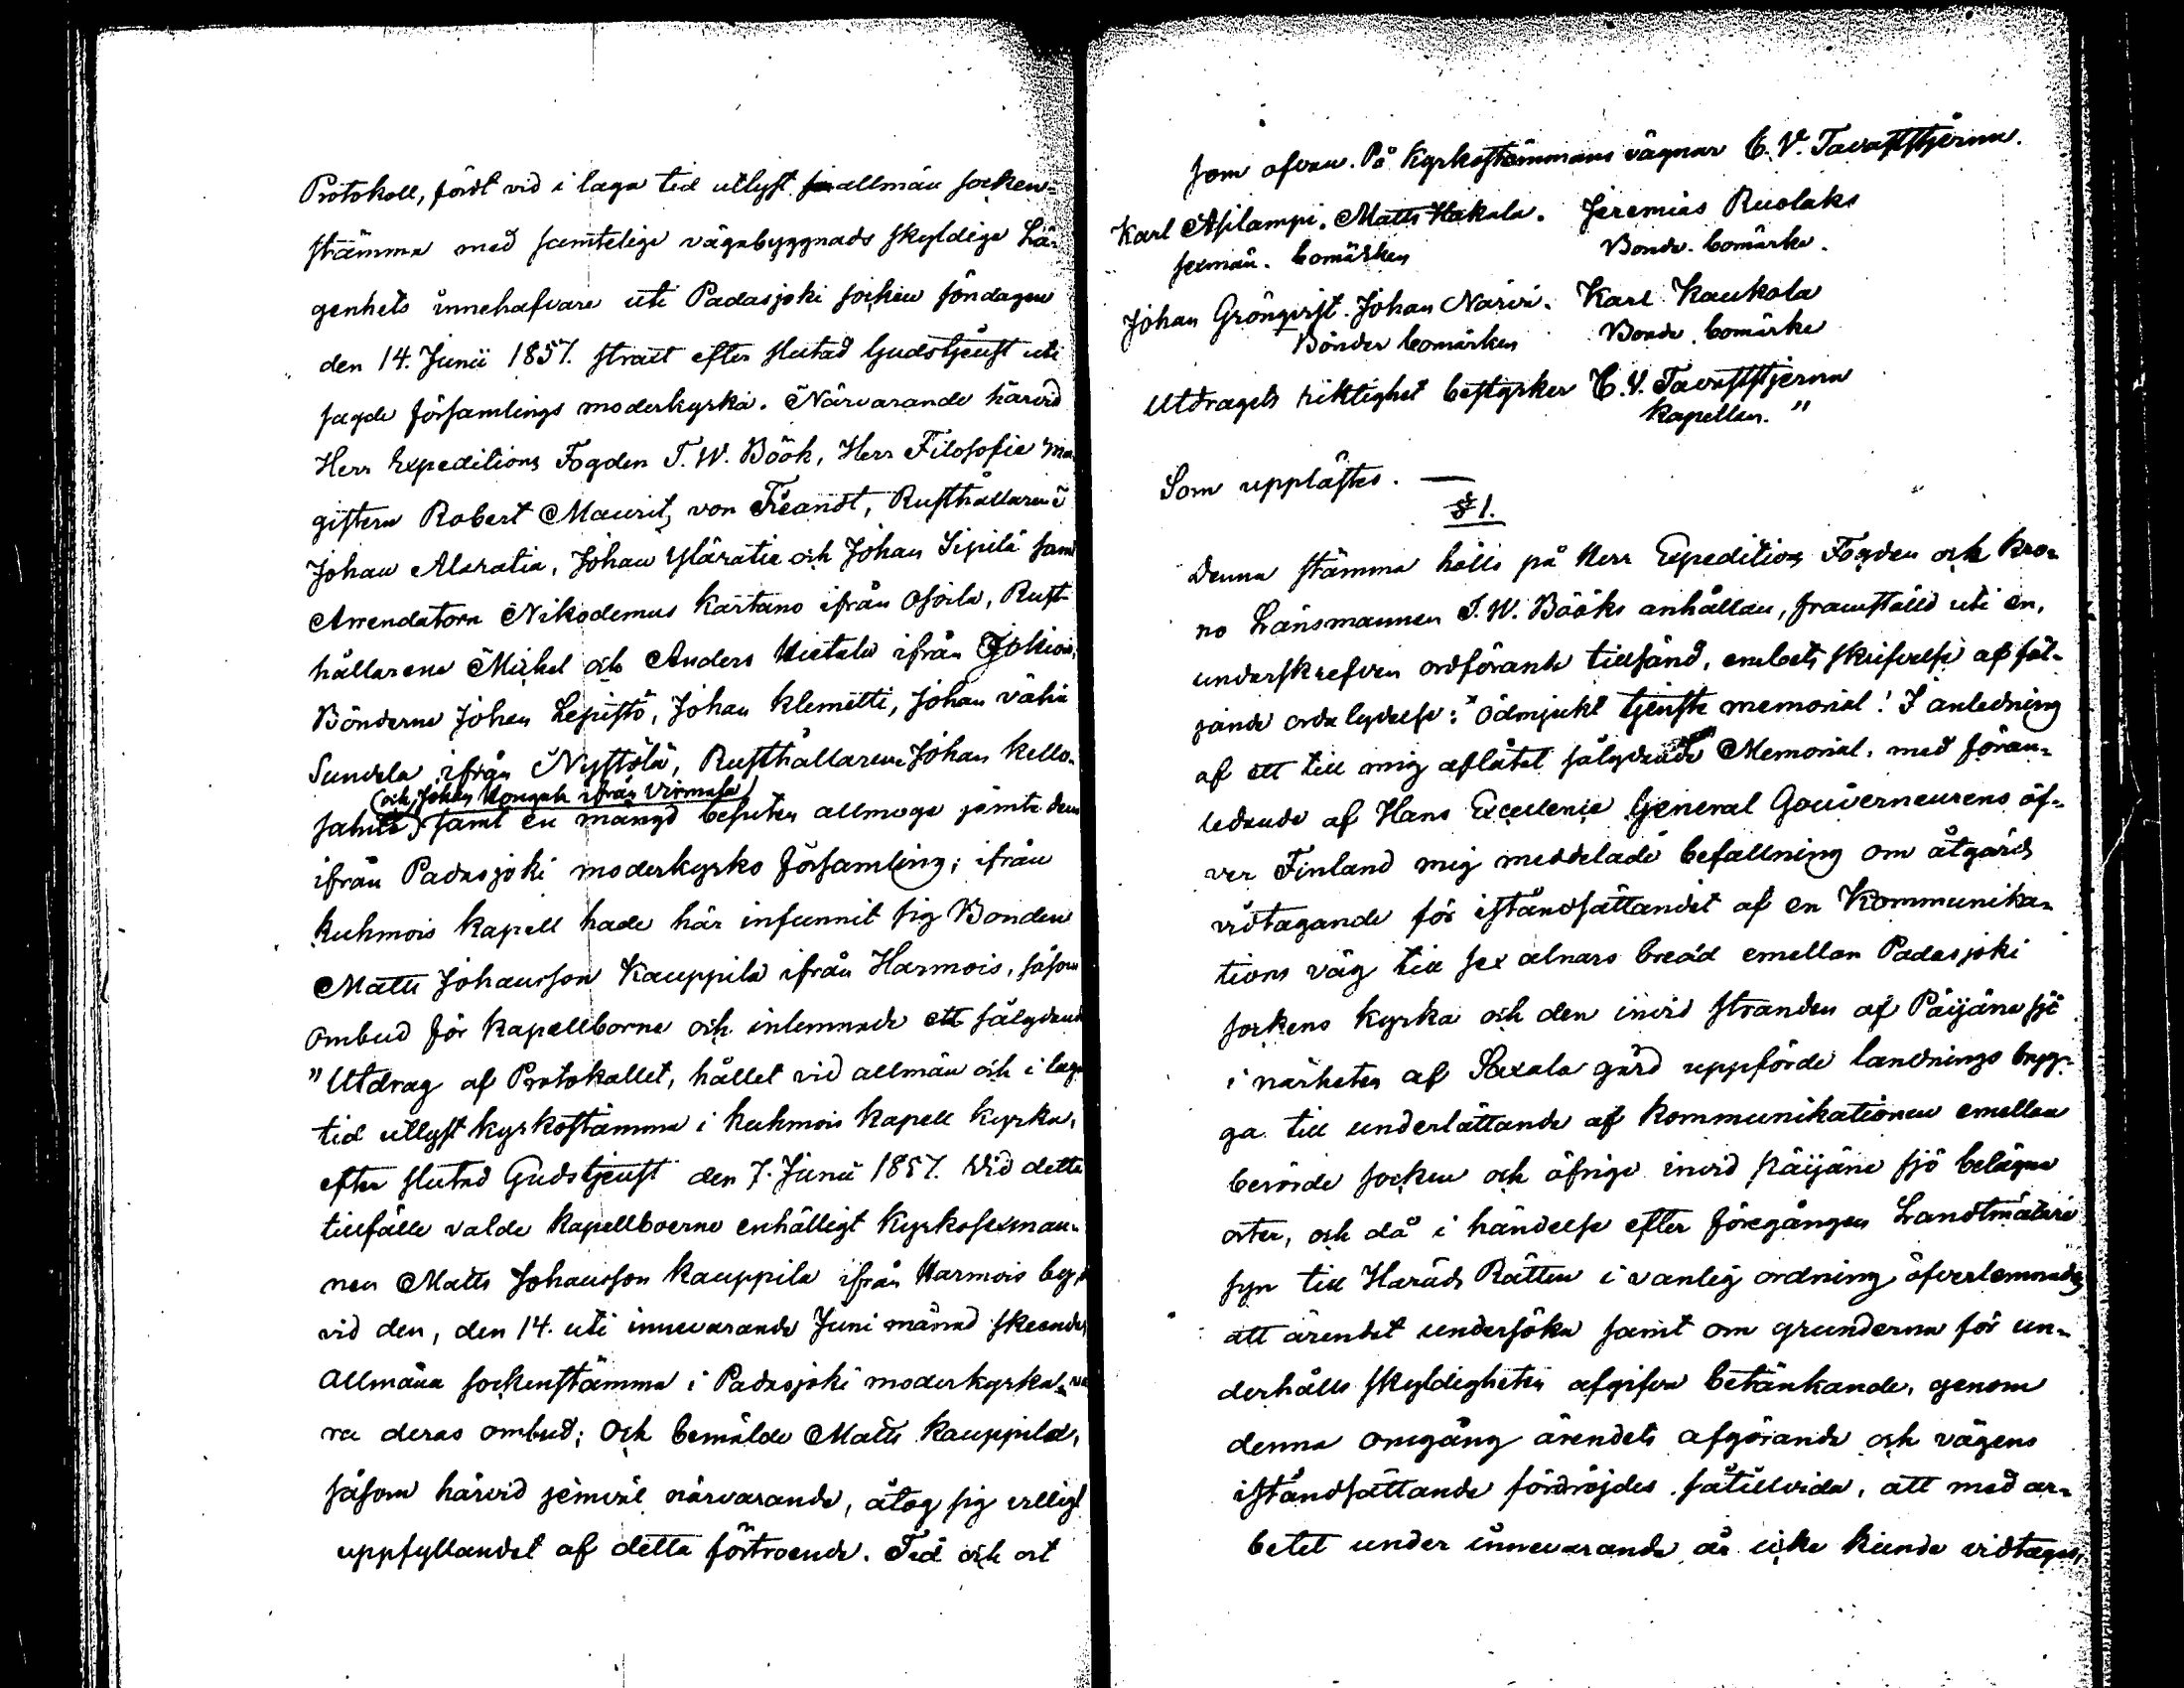 Protokoll, fördt vid i laga tid utlyst allmän socken-
stämma med samtelige vägabyggnads skyldige Lä-
genhets innehafvare uti Padasjoki socken söndagen
den 14. Junii 1857. strait efter slutad Gudstjenst uti
sagde församlings moderkyrka. Närvarande härvid
Herr Expeditions Fogden T. W. Böök, Herr Filosofie Ma
gistern Robert Maurits von Freandt, Rusthållarene
Johan Alaratia, Johan Yläratie och Johan Sipilä samt
Arrendatorn Nikodemus Kartano ifrån Osoila, Rust-
hållarene Mickel och Anders Uietala ifrån Jokiois,
Bönderne Johan Lepistö, Johan Klemetti, Johan Vähä
Sundila ifrån Nystölä, Rusthållaren Johan Kello-
(och Johan Uongah ifrån Virmaila)
salmi) samt en mängd besuten allmoge jämte dem
ifrån Padasjoki moderkyrko Församling; ifrån
Kuhmois Kapell hade här infunnit sig Bonden
Matts Johansson Kauppila ifrån Harmois, såsom
Ombud för Kapellborne och inlemnade ett sålydande
"Utdrag af Protokollet, hållet vid allmän och i laga
tid utlyst Kyrkostämma i Kuhmois Kapell Kyrka,
efter slutad Gudstjenst den 7. Junii 1857. Vid detta
tillfälle valde Kapellboerne enhälligt Kyrkosexman-
nen Matts Johansson Kauppila ifrån Harmois by,
vid den, den 14. uti innevarande Juni månad skeende
Allmäna sockenstämma i Padasjoki moderkyrka, va
ra deras ombud; Och bemälde Matts Kauppila,
såsom härvid jemväl närvarande, åtog sig villigt
uppfyllandet af detta förtroende. Tid och ort
som ofvan. På Kyrkostämmans vägnar C. V. Tavaststjerna.
Karl Asilampi. Matts Hakala. Jeremias Ruolaks
sexmän. bomärken Bonde. bomärke.
Johan Grönqvist. Johan Närvi. Karl Kaukola
Bönder bomärken Bonde. bomärke
Utdragets riktighet bestyrker C. V. Tavaststjerna
Kapellan."
Som upplästes. —
§ 1.
Denna stämma hölls på Herr Expeditions Fogden och Kro-
no Länsmannen T. W. Bööks anhållan, framställd uti en,
underskrefven ordförande tillsänd, embets skrifvelse af föl-
jande ordalydelse: "Ödmjukt tjenste memorial! I anledning
af ett till mig aflåtet sålydande Memorial, med föran-
ledande af Hans Excellence General Gouverneurens öf-
ver Finland mig meddelade befallning om åtgärds
vidtagande för iståndsättandet af en Kommunika-
tions väg till sex alnars bredd emellan Padasjoki
sockens Kyrka och den invid stranden af Päijäne sjö
i närheten af Saxala gård uppförde landnings bryg-
ga till underlättande af Kommunikationen emellan
berörde socken och öfrige invid Päijäne sjö belägna
orter, och då i händelse efter föregången Landtmäteri
syn till Härads Rätten i vanlig ordning öfverlemnades
att ärendet undersöka samt om grunderna för un-
derhålls skyldigheten afgifva betänkande, genom
denna omgång ärendets afgörande och vägens
iståndsättande fördröjdes såtillvida, att med ar-
betet under innevarande år icke kunde vidtagas,